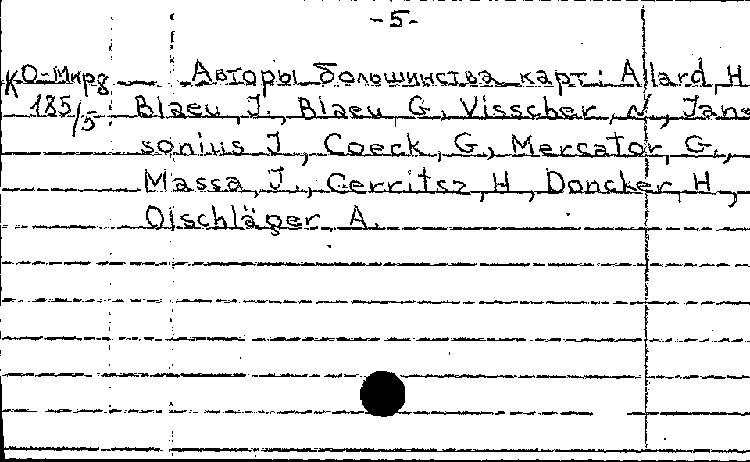 -5-
КО-Мир8 Авторы большинства карт: Allard, H
185/5 Blaeu, J., Blaeu G., Visscher, N., Jans
sonius J., Coeck, G., Mercator, G.,
Massa, J., Gerritsz, H, Doncker, H,
Olschläger A.